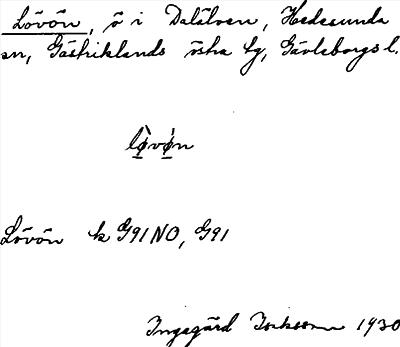 Lövön, ö i Dalälven, Hedesunda
sn, Gästriklands östra tg, Gävleborgs l.
lø̀vø̀n
Lövön k G91NO, G91
Ingegärd Isaksson 1930